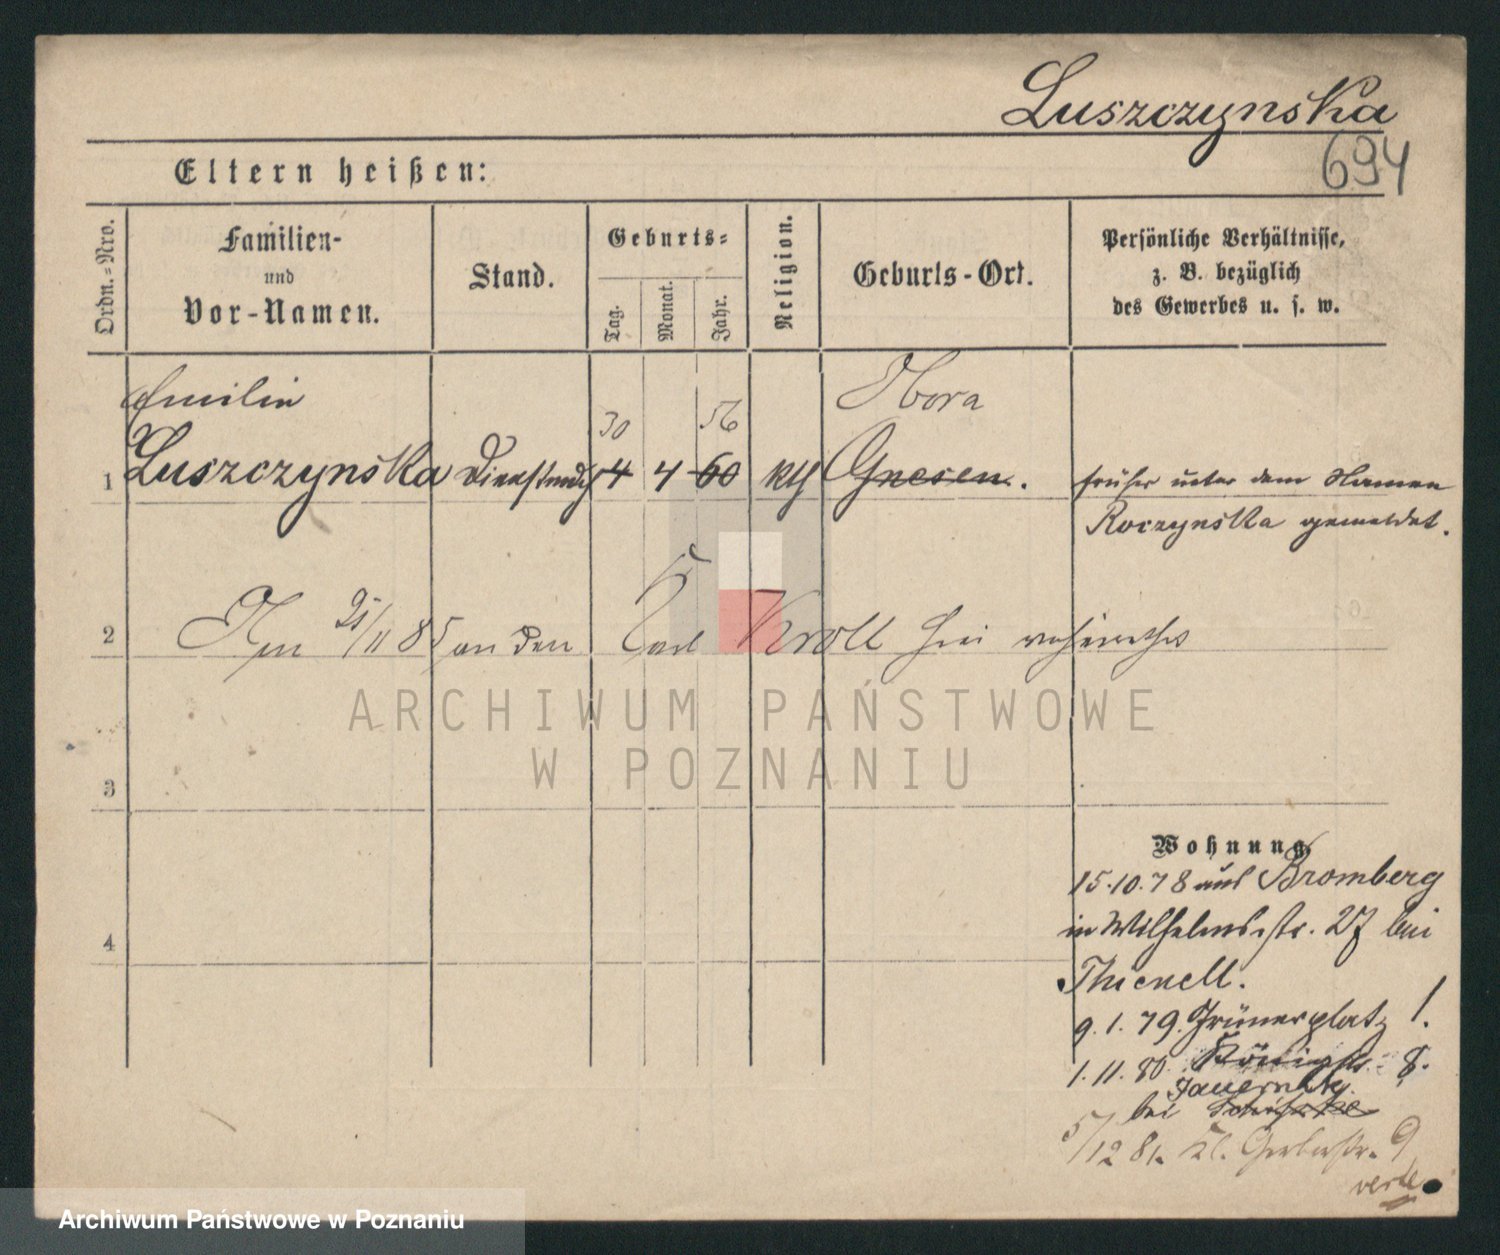 Luszczynska
694
Eltern heißen:
Ordn.-Nro.
Familien-
und
Vor-Namen.
Stand.
Geburts-
Tag.
Monat.
Jahr.
Religion.
Geburts-Ort.
Persönliche Verhältnisse,
z. B. bezüglich
des Gewerbes u. s. w.
Emilie
30 56 Obora
1 Luszczynska Dienstmdch 4 4 60 kth Gnesen. früher unter dem Namen
Roczynska gemeldet.
2 Am 25/11 85 an den Karl Kroll hier verheirathet
ARCHIWUM PAŃSTWOWE
W POZNANIU
3
Wohnung.
15.10.78 aus Bromberg
4 in Wilhelmsstr. 27 bei
Thienell.
9.1.79. Grünerplatz 1.
1.11.80. Königsstr. 8.
bei
5/12 81. Kl. Gerberstr. 9
verte
Archiwum Państwowe w Poznaniu